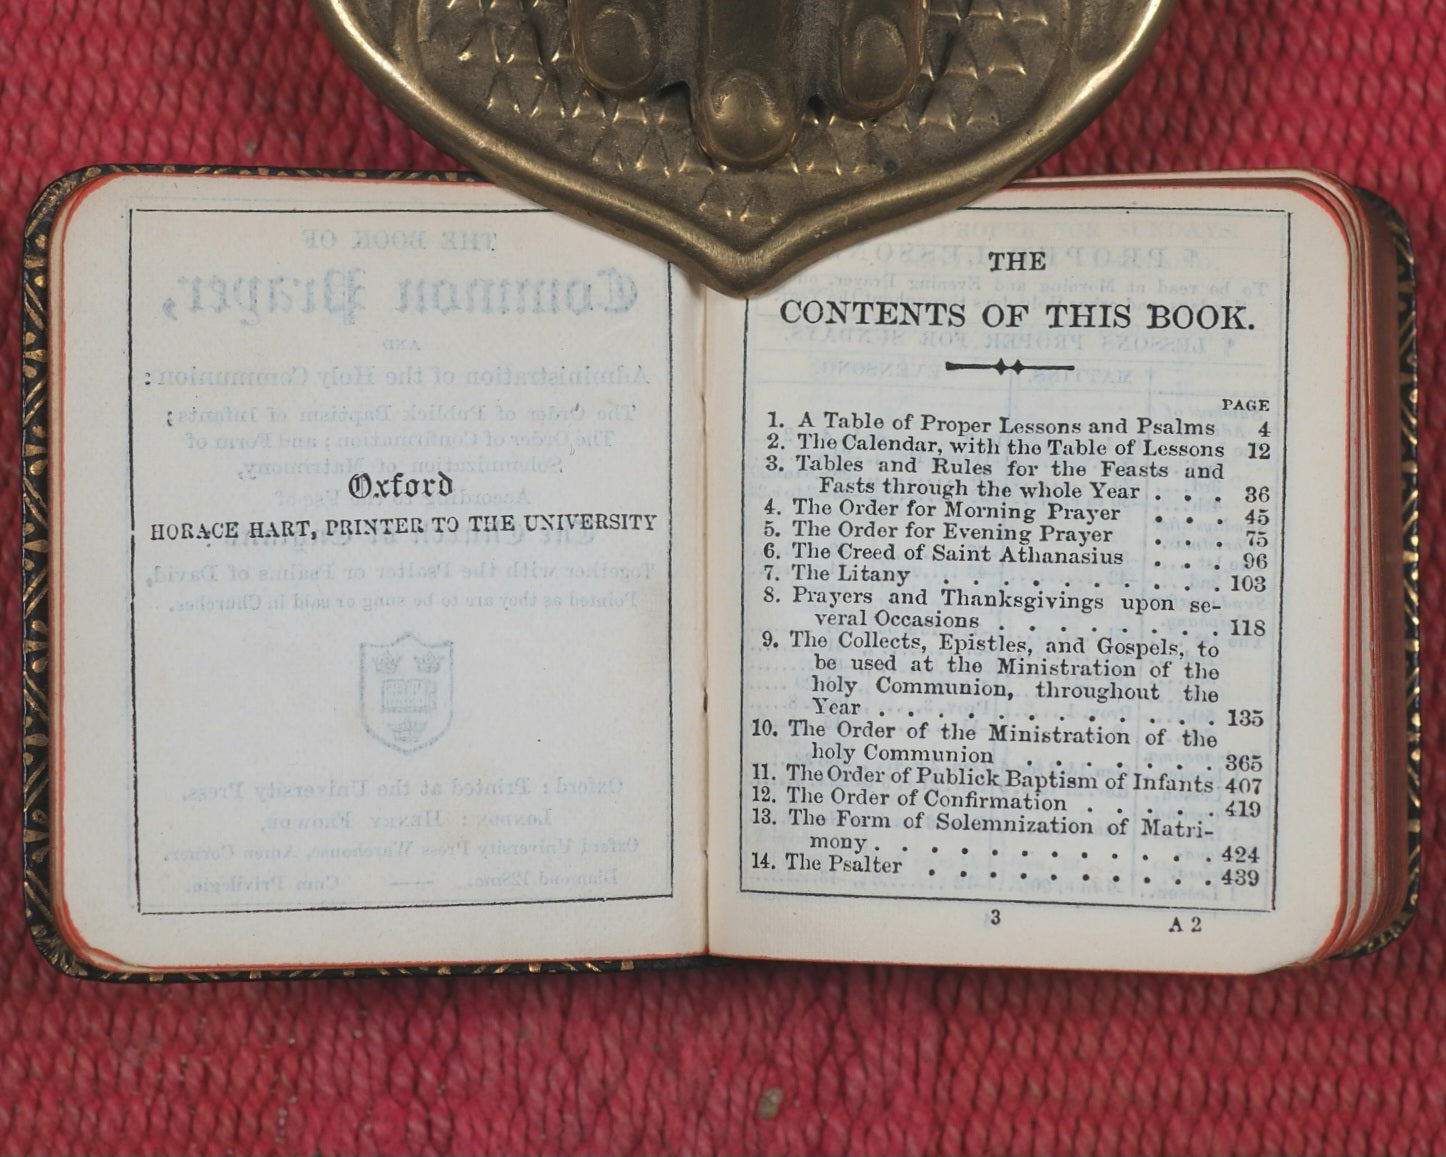 Oxford
HORACE HART, PRINTER TO THE UNIVERSITY
THE
CONTENTS OF THIS BOOK.
PAGE
1. A Table of Proper Lessons and Psalms 4
2. The Calendar, with the Table of Lessons 12
3. Tables and Rules for the Feasts and
Fasts through the whole Year . . . 36
4. The Order for Morning Prayer . . . 45
5. The Order for Evening Prayer . . . 75
6. The Creed of Saint Athanasius . . . 96
7. The Litany . . . . . . . . . . 103
8. Prayers and Thanksgivings upon se-
veral Occasions . . . . . . . . 118
9. The Collects, Epistles, and Gospels, to
be used at the Ministration of the
holy Communion, throughout the
Year . . . . . . . . . . . . . 135
10. The Order of the Ministration of the
holy Communion . . . . . . . 365
11. The Order of Publick Baptism of Infants 407
12. The Order of Confirmation . . . . . 419
13. The Form of Solemnization of Matri-
mony . . . . . . . . . . . . 424
14. The Psalter . . . . . . . . . . 439
3 A 2